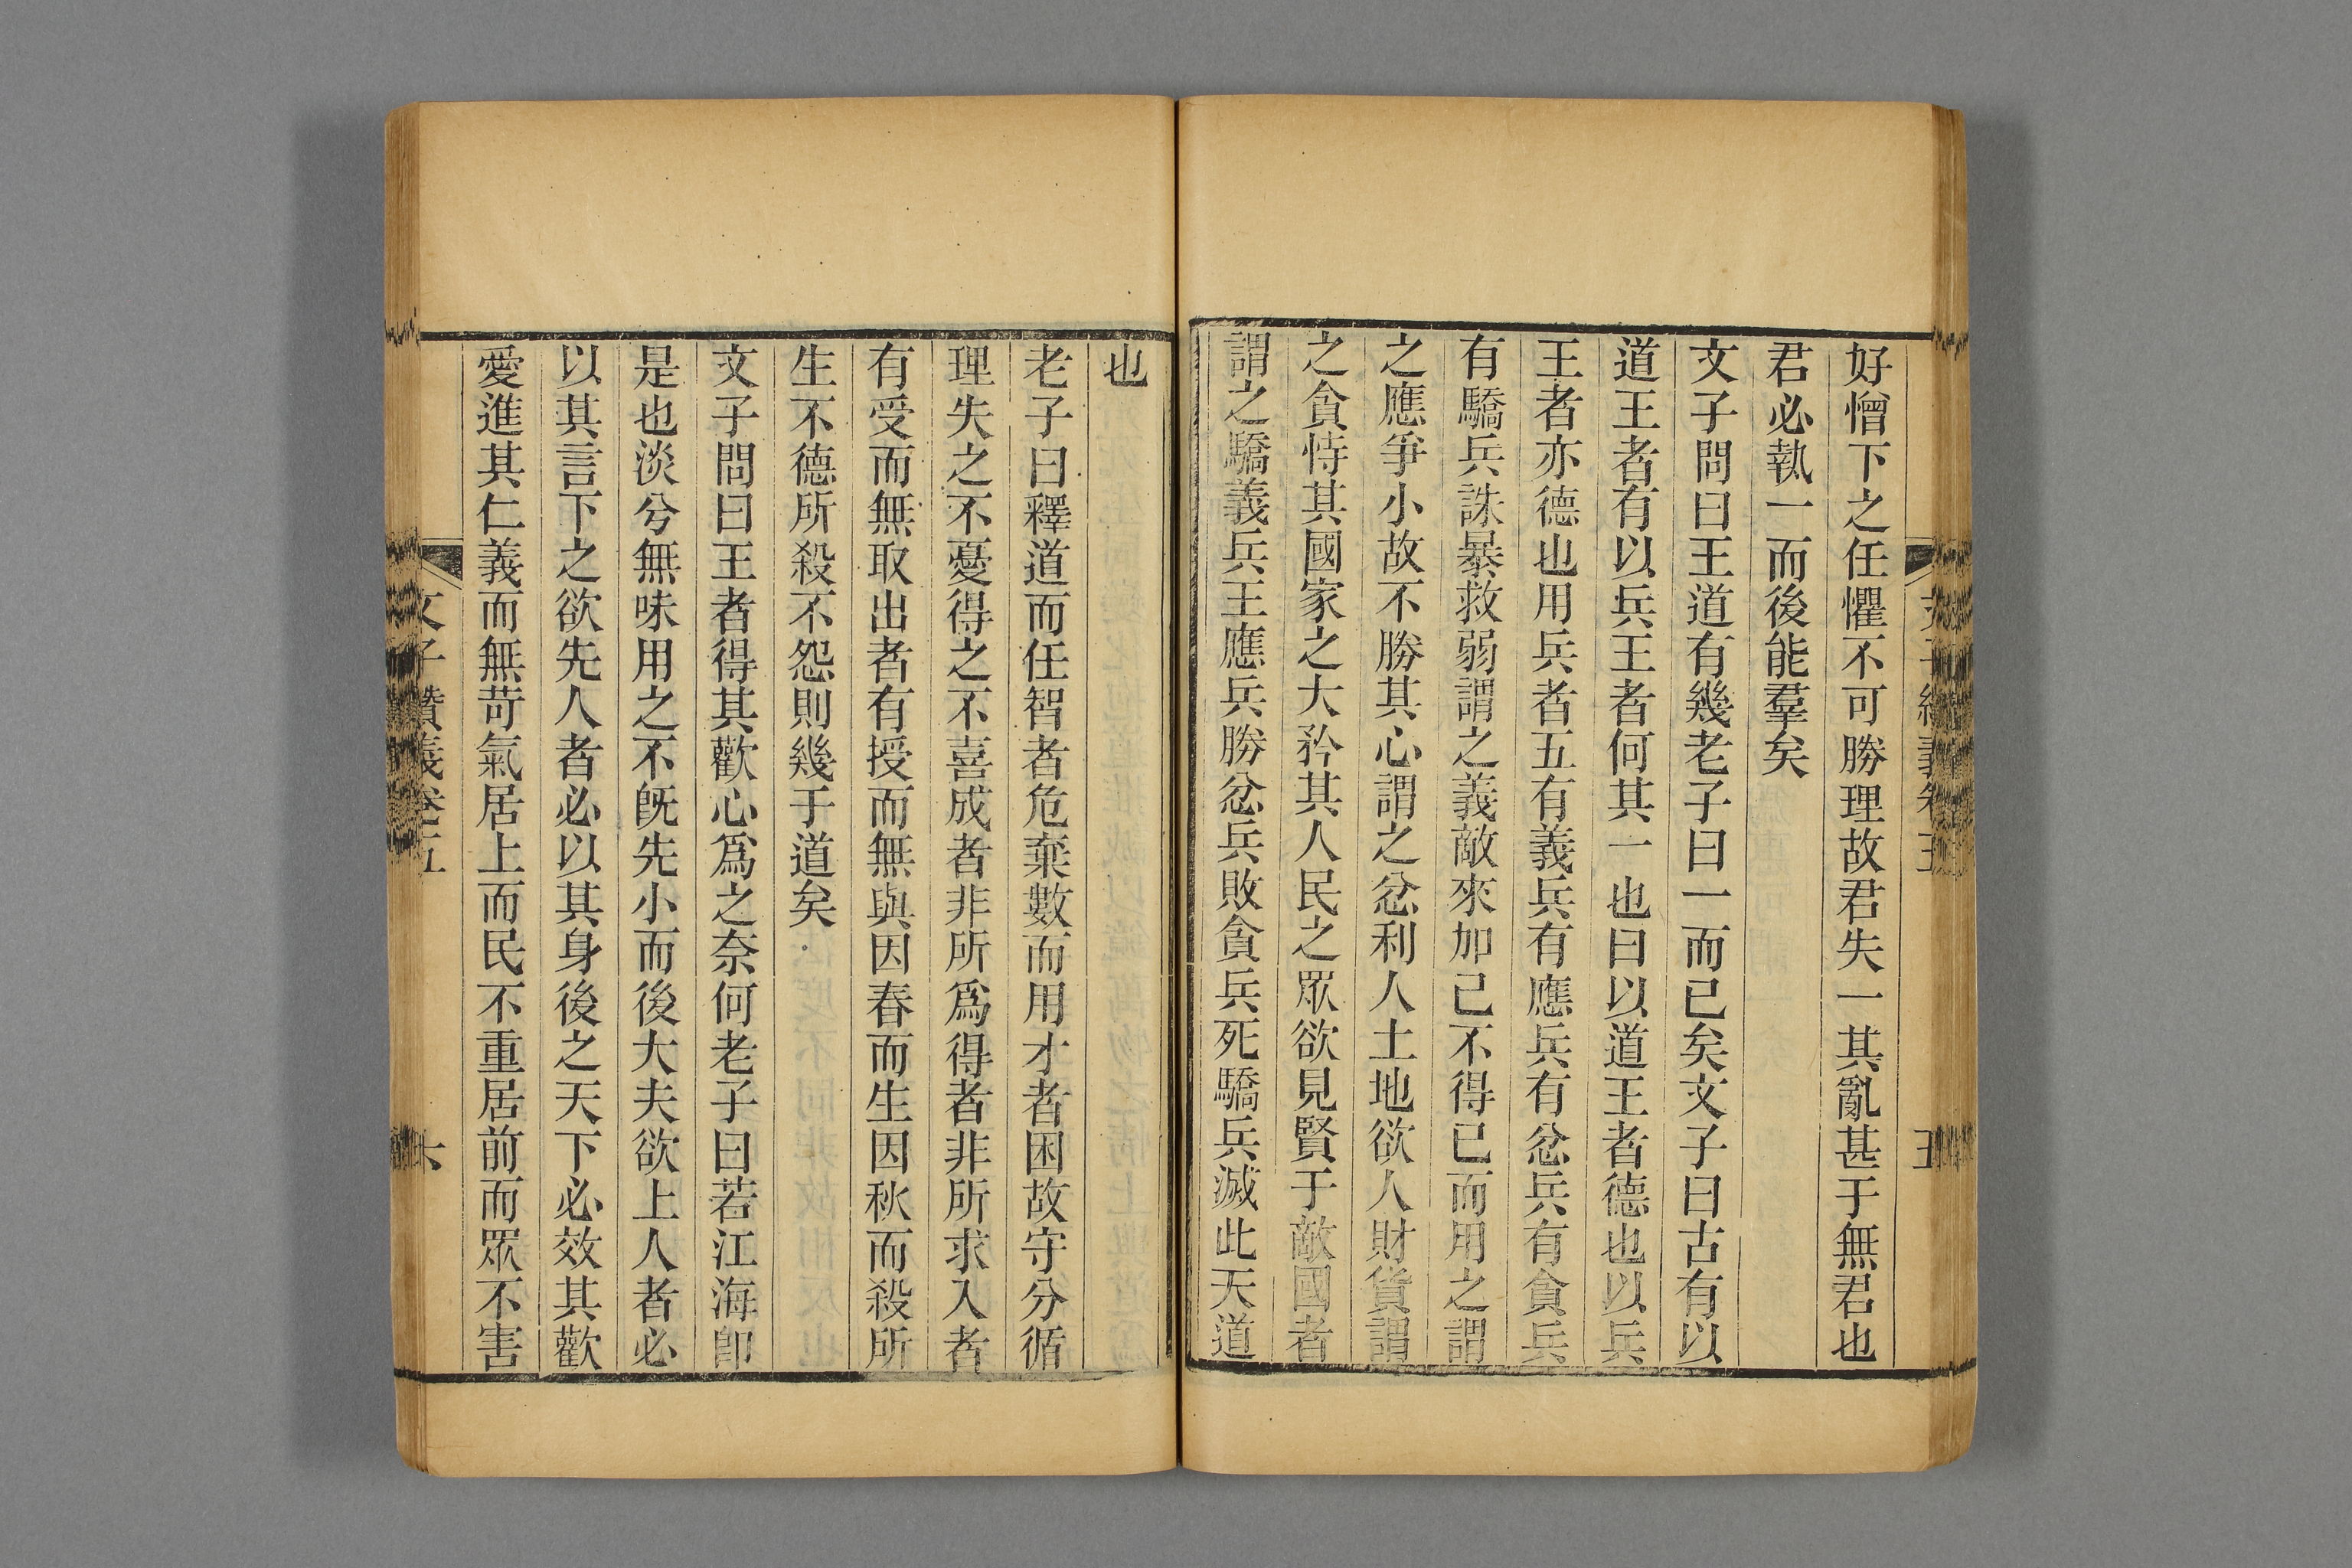 好憎下之任懼不可勝理故君失一其亂甚于無君也
君必執一而後能羣矣
文子問曰王道有幾老子曰一而已矣文子曰古有以
道王者有以兵王者何其一也曰以道王者德也以兵
王者亦德也用兵者五有義兵有應兵有忿兵有貪兵
有驕兵誅暴救弱謂之義敵來加己不得已而用之謂
之應爭小故不勝其心謂之忿利人土地欲人財貨謂
之貪恃其國家之大矜其人民之眾欲見賢于敵國者
謂之驕義兵王應兵勝忿兵敗貪兵死驕兵滅此天道
也
老子曰釋道而任智者危棄數而用才者困故守分循
理失之不憂得之不喜成者非所爲得者非所求入者
有受而無取出者有授而無與因春而生因秋而殺所
生不德所殺不怨則幾于道矣
文子問曰王者得其歡心爲之奈何老子曰若江海卽
是也淡兮無味用之不旣先小而後大夫欲上人者必
以其言下之欲先人者必以其身後之天下必效其歡
愛進其仁義而無苛氣居上而民不重居前而眾不害
文子纘義卷五
六